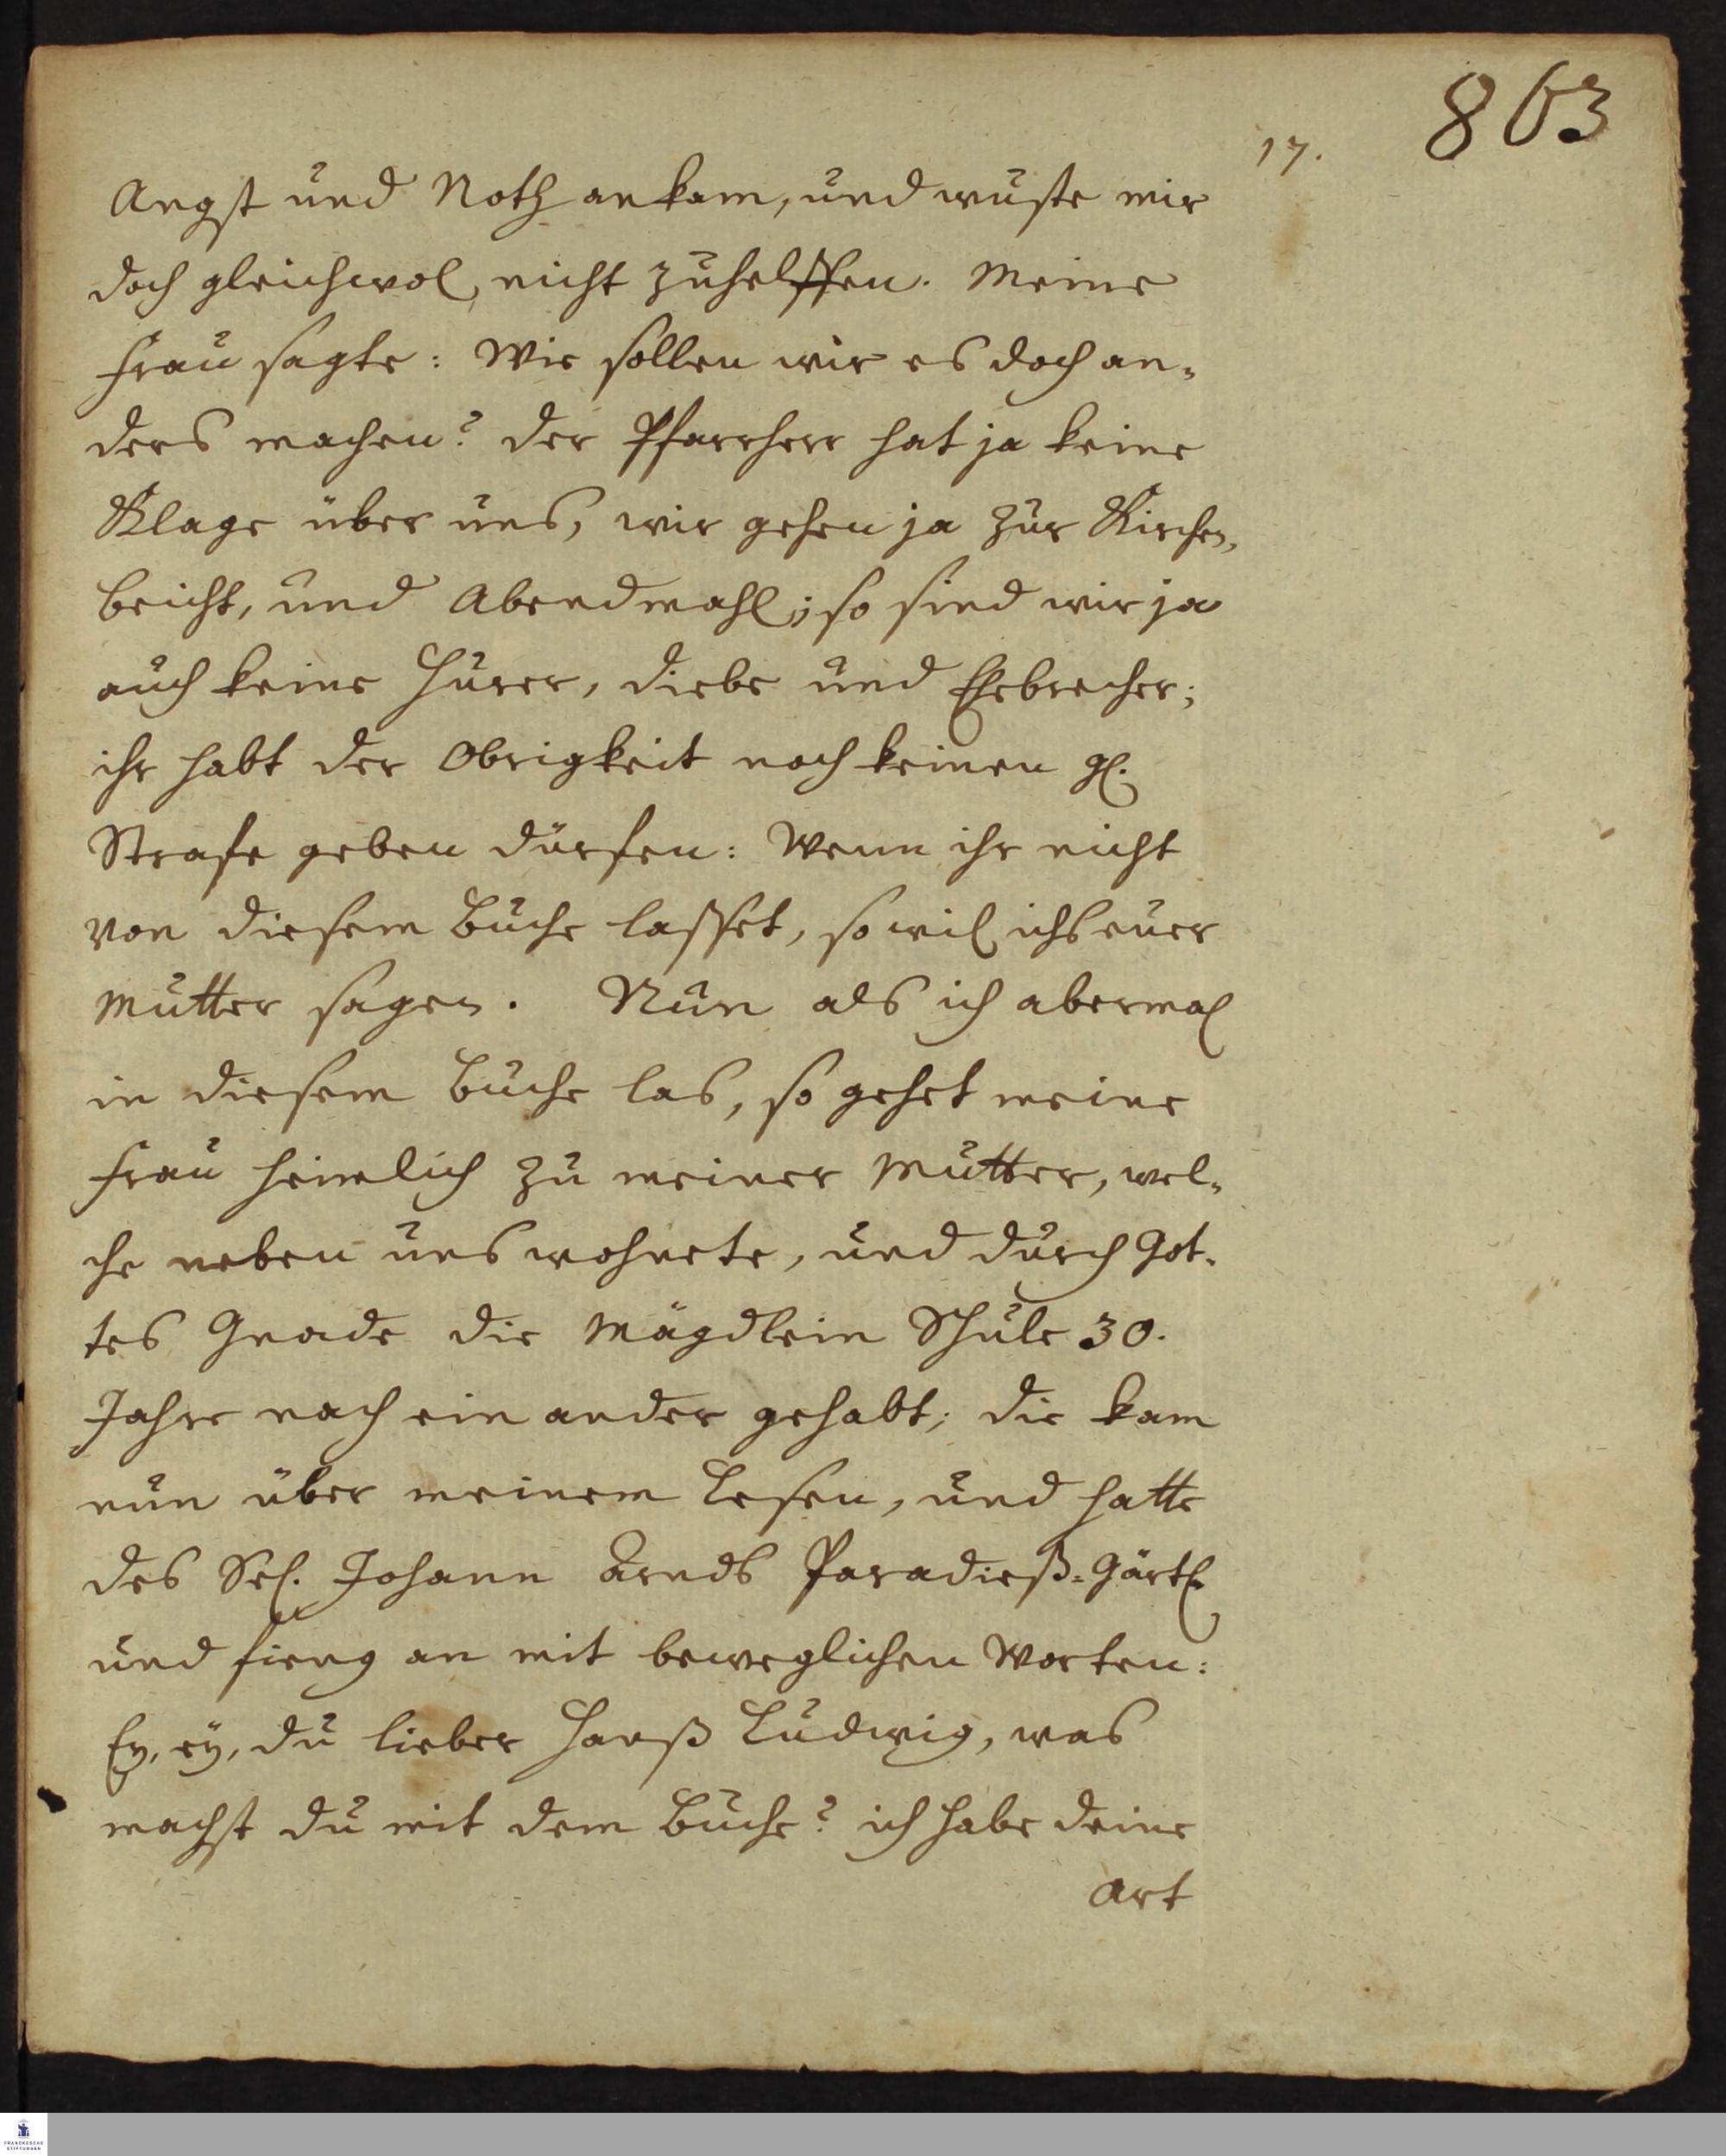 863
17.
Angst und Noth ankam, und wuste mir
doch gleichwol nicht zuhelffen. Meine
Frau sagte: Wie sollen wir es doch an-
ders machen? der Pfarrherr hat ja keine
Klage über uns, wir gehen ja zur Kirchen,
beicht, und Abendmahl; so sind wir ja
auch keine Hurer, diebe und Ehebrecher;
ihr habt der Obrigkeit noch keinen gl.
Strafe geben dürfen: Wenn ihr nicht
von diesem Buche lasset, so wil ichs euer
Mutter sagen. Nun als ich abermal
in diesem Buche las, so gehet meine
Frau heimlich zu meiner Mutter, wel-
che neben uns wohnete, und durch Got-
tes Gnade die Mägdlein Schule 30.
Jahre nach ein ander gehabt; die kam
nun über meinem Lesen, und hatte
des Sel. Johann Arnds Paradieß-Gärtl.
und fieng an mit beweglichen Worten:
Ey, ey, du lieber Hanß Ludwig, was
machst du mit dem Buche? ich habe deine
Art
FRANCKESCHE
STIFTUNGEN